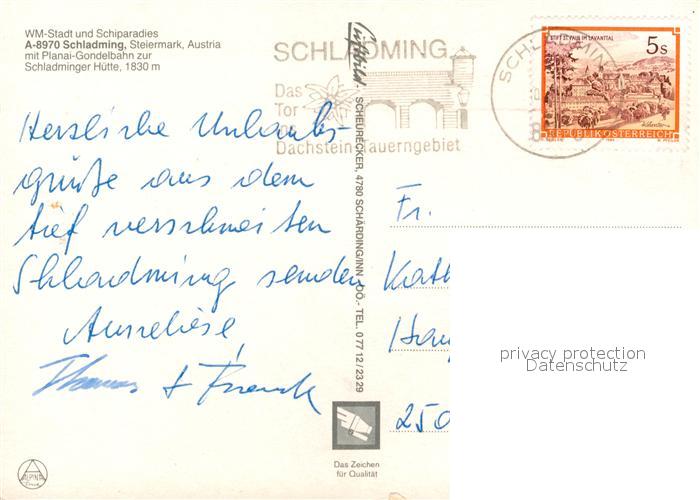 WM-Stadt und Schiparadies
A-8970 Schladming, Steiermark, Austria
mit Planai-Gondelbahn zur
Schladminger Hütte, 1830 m
SCHLADMING
Das
Tor
Dachstein-Tauerngebiet
SCHLADMING
STIFT ST. PAUL IM LAVANTTAL
5 s
REPUBLIK ÖSTERREICH
Herzliche Urlaubs-
grüße aus dem
tief verschneiten
Schladming senden
Anneliese,
Thomas + Franck
Luftbild - SCHEURECKER, 4780 SCHÄRDING/INN OÖ.- TEL. 0 77 12 / 23 29
Fr.
Kath
Hau
250
privacy protection
Datenschutz
Das Zeichen
für Qualität
ALPINA